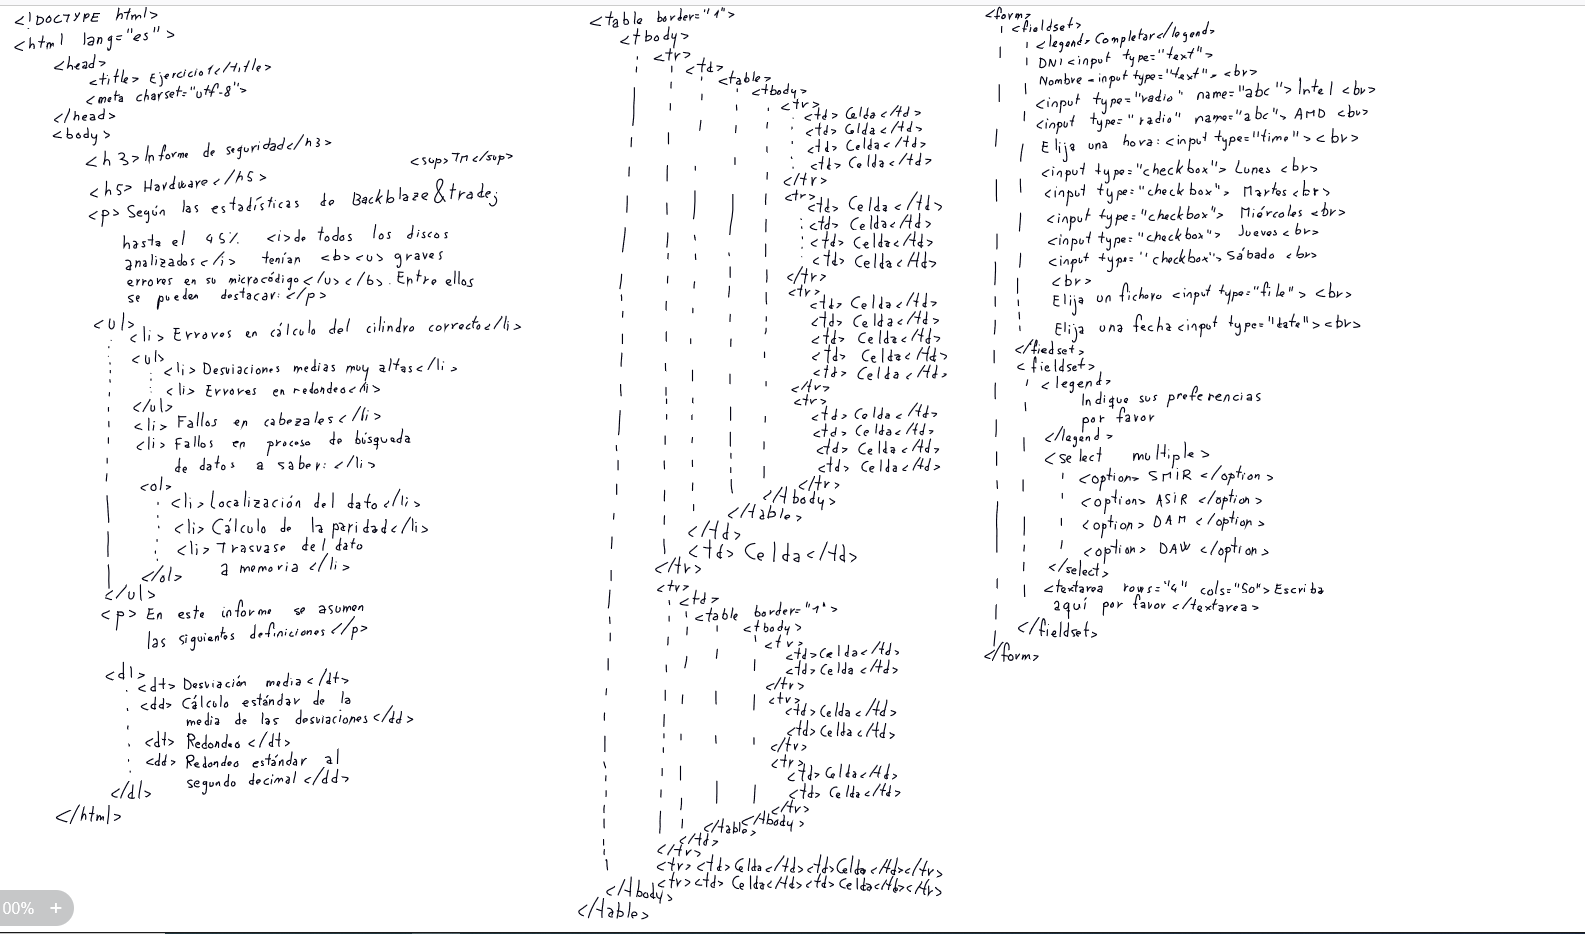 <!DOCTYPE html>
<html lang="es">
<head>
<title> Ejercicio1</title>
<meta charset="utf-8">
</head>
<body>
<h3>Informe de seguridad</h3>
<sup>TM</sup>
<h5> Hardware</h5>
<p> Según las estadísticas de Backblaze&trade;
hasta el 45% <i>de todos los discos
analizados</i> tenían <b><u> graves
errores en su microcódigo</u></b>. Entre ellos
se pueden destacar:</p>
<ul>
<li> Errores en cálculo del cilindro correcto</li>
<ul>
<li> Desviaciones medias muy altas</li>
<li> Errores en redondeo</li>
</ul>
<li> Fallos en cabezales</li>
<li> Fallos en proceso de búsqueda
de datos a saber:</li>
<ol>
<li> Localización del dato</li>
<li> Cálculo de la paridad</li>
<li> Trasvase del dato
a memoria </li>
</ol>
</ul>
<p> En este informe se asumen
las siguientes definiciones</p>
<dl>
<dt> Desviación media</dt>
<dd> Cálculo estándar de la
media de las desviaciones</dd>
<dt> Redondeo </dt>
<dd> Redondeo estándar al
segundo decimal </dd>
</dl>
</html>
<table border="1">
<tbody>
<tr>
<td>
<table>
<tbody>
<tr>
<td> Celda</td>
<td> Celda</td>
<td> Celda</td>
<td> Celda</td>
</tr>
<tr>
<td> Celda</td>
<td> Celda</td>
<td> Celda</td>
<td> Celda</td>
</tr>
<tr>
<td> Celda</td>
<td> Celda</td>
<td> Celda</td>
<td> Celda</td>
<td> Celda</td>
</tr>
<tr>
<td> Celda</td>
<td> Celda</td>
<td> Celda</td>
<td> Celda</td>
</tr>
</tbody>
</table>
</td>
<td> Celda</td>
</tr>
<tr>
<td>
<table border="1">
<tbody>
<tr>
<td>Celda</td>
<td> Celda</td>
</tr>
<tr>
<td>Celda</td>
<td>Celda</td>
</tr>
<tr>
<td> Celda</td>
<td> Celda</td>
</tr>
</tbody>
</table>
</td>
</tr>
<tr><td> Celda</td><td>Celda</td></tr>
<tr><td> Celda</td><td>Celda</td></tr>
</tbody>
</table>
<form>
<fieldset>
<legend> Completar</legend>
DNI <input type="text">
Nombre <input type="text"> <br>
<input type="radio" name="abc"> Intel <br>
<input type="radio" name="abc"> AMD <br>
Elija una hora: <input type="time"><br>
<input type="checkbox"> Lunes <br>
<input type="checkbox"> Martes <br>
<input type="checkbox"> Miércoles <br>
<input type="checkbox"> Jueves <br>
<input type="checkbox"> Sábado <br>
<br>
Elija un fichero <input type="file"> <br>
Elija una fecha <input type="date"><br>
</fiedset>
<fieldset>
<legend>
Indique sus preferencias
por favor
</legend>
<select multiple>
<option> SMIR </option>
<option> ASIR </option>
<option> DAM </option>
<option> DAW </option>
</select>
<textarea rows="4" cols="50"> Escriba
aquí por favor </textarea>
</fieldset>
</form>
00% +